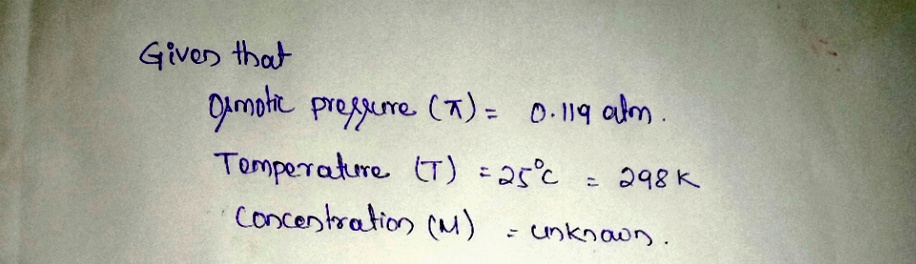 Given that
Osmotic pressure (π) = 0.119 atm.
Temperature (T) = 25°C = 298 K
Concentration (M) = unknown.